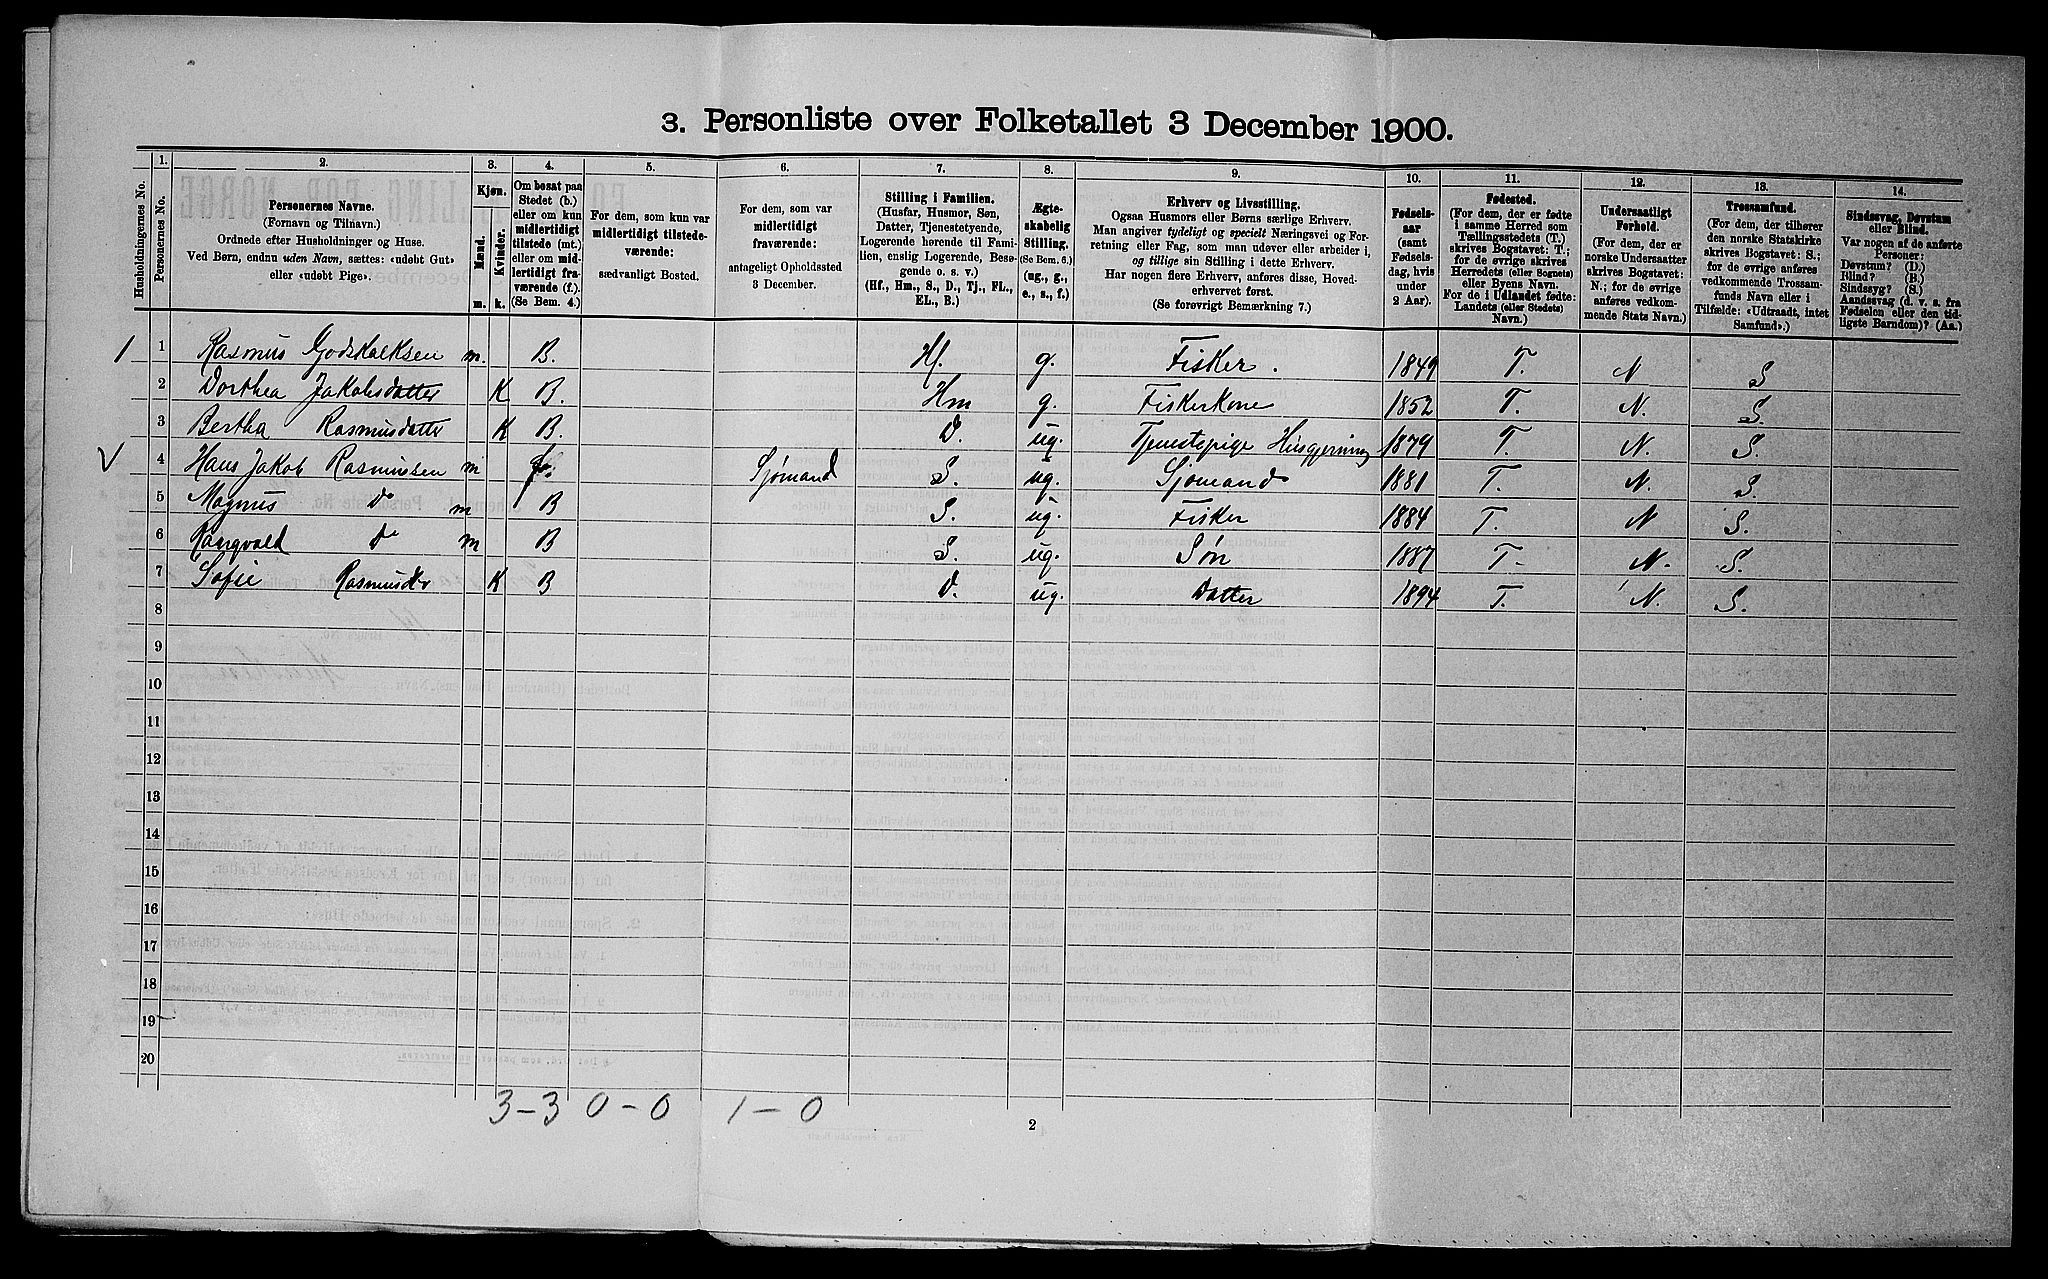 3. Personliste over Folketallet 3 December 1900.
Husholdningernes No.
1. Personernes No.
2. Personernes Navne.
(Fornavn og Tilnavn.)
Ordnede efter Husholdninger og Huse.
Ved Børn, endnu uden Navn, sættes: «udøbt Gut»
eller «udøbt Pige».
3. Kjøn.
Mænd. m.
Kvinder. k.
4. Om bosat paa
Stedet (b.)
eller om kun
midlertidigt
tilstede (mt.)
eller om mid-
lertidigt fra-
værende (f.).
(Se Bem. 4.)
5. For dem, som kun var
midlertidigt tilstede-
værende:
sædvanligt Bosted.
6. For dem, som var
midlertidigt
fraværende:
antageligt Opholdssted
3 December.
7. Stilling i Familien.
(Husfar, Husmor, Søn,
Datter, Tjenestetyende,
Logerende hørende til Fami-
lien, enslig Logerende, Besø-
gende o. s. v.)
(Hf., Hm., S., D., Tj., FL.,
EL., B.)
8. Ægte-
skabelig
Stilling.
(Se Bem. 6.)
(ug., g.,
e., s., f.)
9. Erhverv og Livsstilling.
Ogsaa Husmors eller Børns særlige Erhverv.
Man angiver tydeligt og specielt Næringsvei og For-
retning eller Fag, som man udøver eller arbeider i,
og tillige sin Stilling i dette Erhverv.
Har nogen flere Erhverv, anføres disse, Hoved-
erhvervet først.
(Se forøvrigt Bemærkning 7.)
10. Fødsels-
aar
(samt
Fødsels-
dag, hvis
under
2 Aar).
11. Fødested.
(For dem, der er fødte
i samme Herred som
Tællingsstedets (T.)
skrives Bogstavet: T.;
for de øvrige skrives
Herredets (eller Sognets)
eller Byens Navn.
For de i Udlandet fødte:
Landets (eller Stedets)
Navn.)
12. Undersaatligt
Forhold.
(For dem, der er
norske Undersaatter
skrives Bogstavet:
N.; for de øvrige
anføres vedkom-
mende Stats Navn.)
13. Trossamfund.
(For dem, der tilhører
den norske Statskirke
skrives Bogstavet: S.;
for de øvrige anføres
vedkommende Trossam-
funds Navn eller i
Tilfælde: «Udtraadt, intet
Samfund».)
14. Sindssvag, Døvstum
eller Blind.
Var nogen af de anførte
Personer:
Døvstum? (D.)
Blind? (B.)
Sindssyg? (S.)
Aandssvag (d. v. s. fra
Fødselen eller den tid-
ligste Barndom)? (Aa.)
1 1 Rasmus Godskalksen m. B. Hf. g. Fisker. 1849 T. N S
2 Dorthea Jakobsdatter K B. Hm g. Fiskerkone 1852 T. N. S.
3 Bertha Rasmusdatter K B. D. ug. Tjenestepige Husgjerning 1879 T. N. S.
V 4 Hans Jakob Rasmussen m f. Sjømand S. ug. Sjømand 1881 T. N. S.
5 Magnus Do m B S. ug. Fisker 1884 T. N S.
6 Rangvald Do m B S. ug. Søn 1887 T. N. S.
7 Sofie Rasmusdr K B D. ug. Datter 1894 T. N. S.
8
9
10
11
12
13
14
15
16
17
18
19
20
3-3 0-0 1-0
2